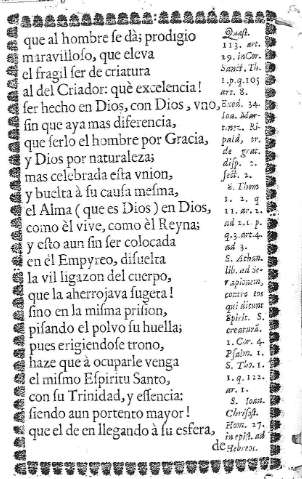 que al hombre se dà; prodigio
maravilloso, que eleva
el fragil ser de criatura
al del Criador: què excelencia!
ser hecho en Dios, con Dios, vno,
sin que aya mas diferencia,
que serlo el hombre por Gracia,
y Dios por naturaleza;
mas celebrada esta vnion,
y buelta à su causa mesma,
el Alma (que es Dios) en Dios,
como èl vive, como èl Reyna;
y esto aun sin ser colocada
en el Empyreo, disuelta
la vil ligazon del cuerpo,
que la aherrojava sugeta!
sino en la misma prision,
pisando el polvo su huella;
pues erigiendose trono,
haze que à ocuparle venga
el mismo Espiritu Santo,
con su Trinidad, y essencia;
siendo aun portento mayor!
que el de en llegando à su esfera,
de
Quæst.
113. art.
19. in Cor.
Sanct. Th.
1. p. q. 105
art. 8.
Exod. 34.
Ioa. Mar-
tinez. Ri-
pald, tr.
de grat.
disp. 2.
sect. 2.
S. Thom
1. 2. q
11. ar. 2.
ad 2. 1 p.
q. 3. art. 4.
ad 3.
S. Athan.
lib. ad Se-
rapionem,
contra eos
qui dicunt
Spirit. S.
creaturã.
1. Cor. 4.
Psalm. 1.
S. Tho. 1.
1. q. 122.
ar. 1.
S. Ioan.
Chrisost.
Hom. 27.
in epist. ad
Hebræos.